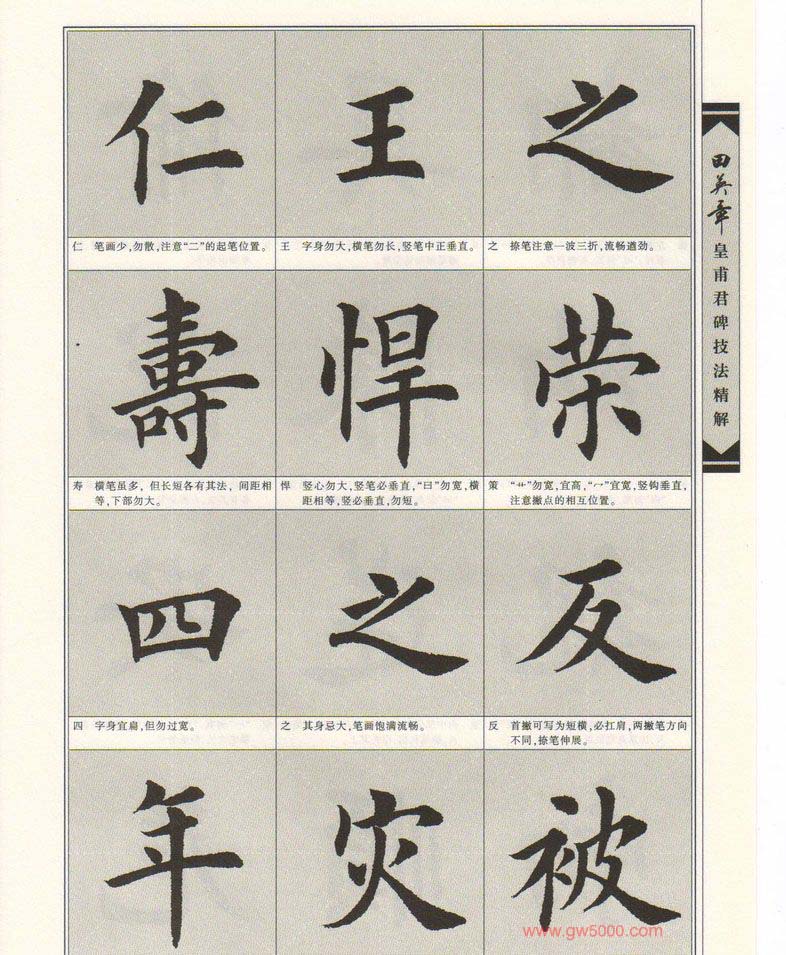 仁 王 之
仁 笔画少,勿散,注意“二”的起笔位置。
王 字身勿大,横笔勿长,竖笔中正垂直。
之 捺笔注意一波三折,流畅遒劲。
壽 悍 荣
寿 横笔虽多,但长短各有其法,间距相
等,下部勿大。
悍 竖心勿大,竖笔必垂直,“曰”勿宽,横
距相等,竖必垂直,勿短。
策 “艹”勿宽,宜高,“冖”宜宽,竖钩垂直,
注意撇点的相互位置。
四 之 反
四 字身宜扁,但勿过宽。
之 其身忌大,笔画饱满流畅。
反 首撇可写为短横,必扛肩,两撇笔方向
不同,捺笔伸展。
年 灾 被
田英章
皇甫君碑技法精解
www.gw5000.com